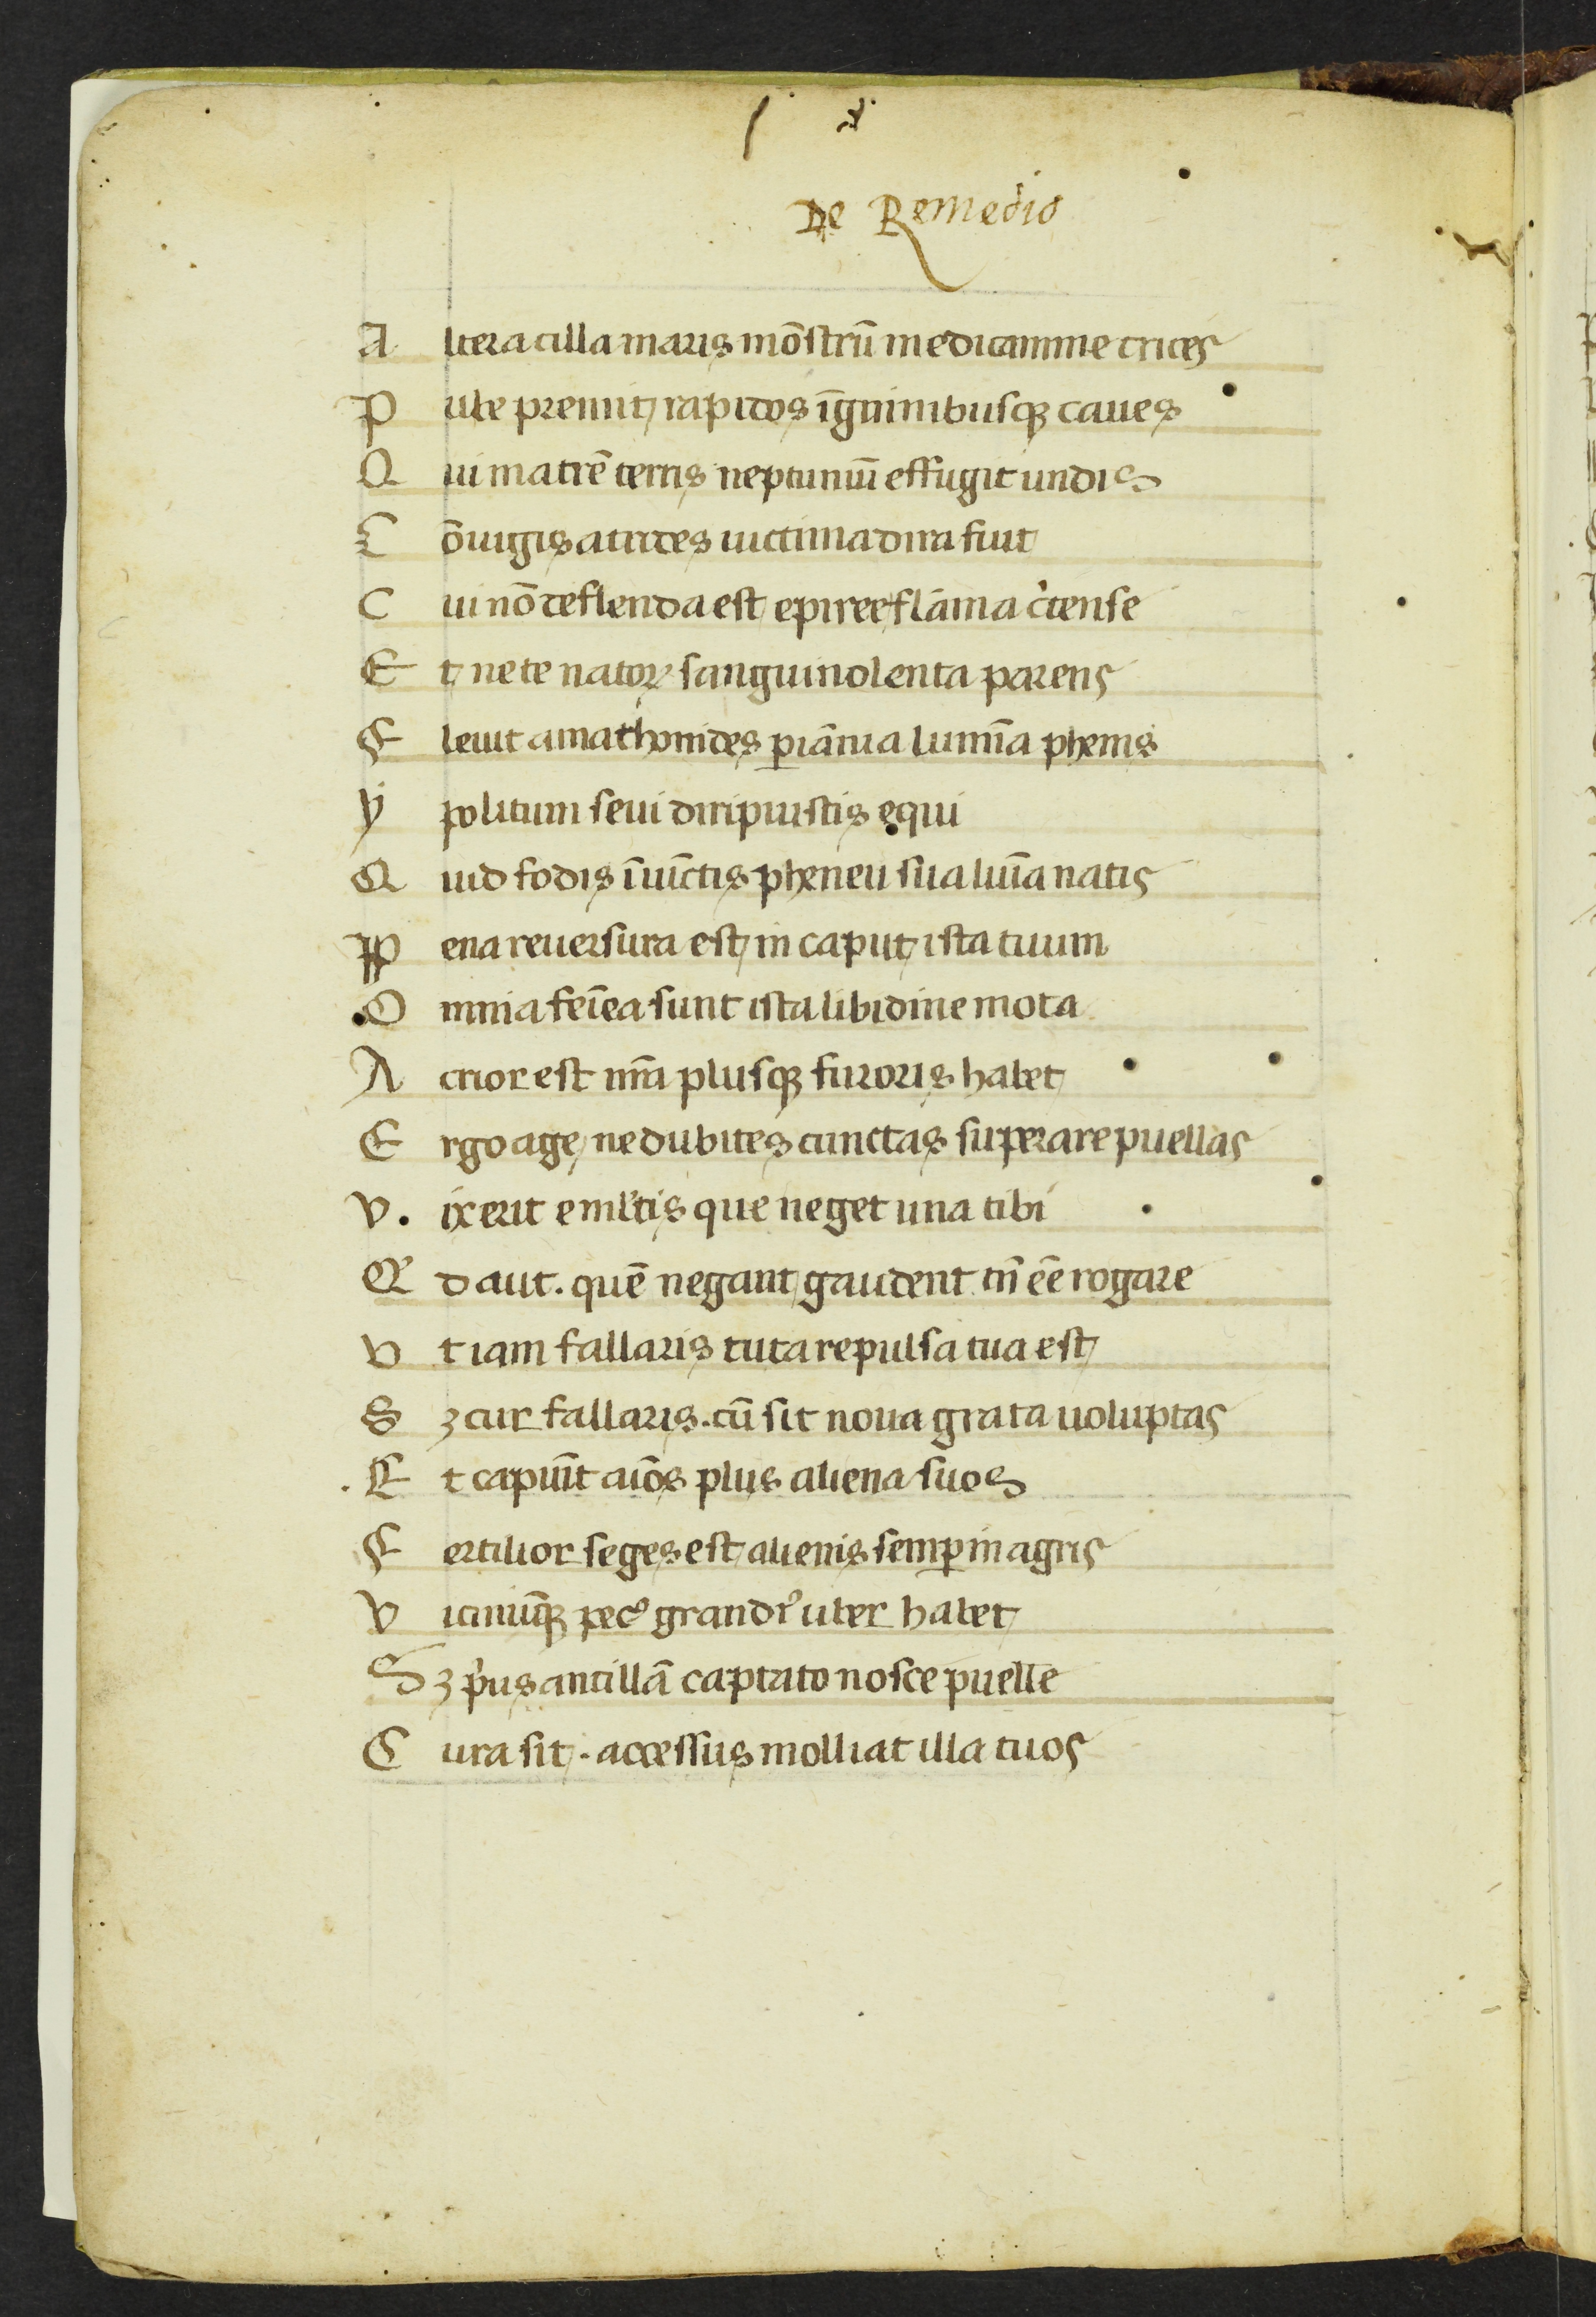 De Remedio
A ltera cilla maris mōstrū medicamine crices
P ube premit rapidos īguinibusqꝫ caues
Q ui matrē terris neptunnū effugit undis
C ōiugis atrides uictima dira fuit
C ui nō deflenda est epiree flāma c̓ıense
E t nete natoꝝ sanguinolenta parens
F leuit amathonides ꝑ iānia lumīa phenis
Y politum seui diripuistis equi
Q uid fodis īuīctis pheneu sua luīa natis
P ena reuersura est in caput ista tuum
O mnia feīea sunt ista libidine mota
A crior est nr̄a plusqꝫ furoris habet
E rgo age ne dubites cunctas superare puellas
V. ix erit e ml̓tis que neget una tibi
Q̓ d aut. quē negant gaudent tn̄ eē rogare
V t iam fallaris tuta repulsa tua est
S ꝫ cur fallaris. cū sit noua grata uoluptas
E t capiūt aīos plus aliena suos
F ertilior seges est alienis semꝑ in agris
V icinūqꝫ pec᷒ grandi᷒ uber habet
S ꝫ p̓us ancillā captato nosce puelle
C ura sit. accessus molliat illa tuos